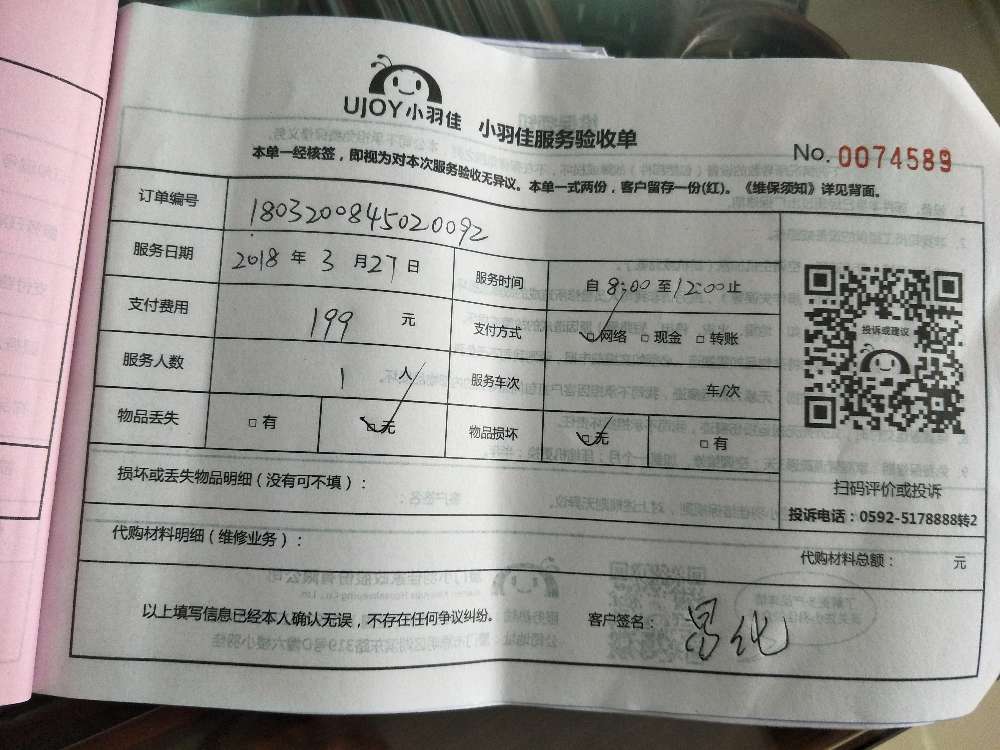 UJOY小羽佳 小羽佳服务验收单
No. 0074589
本单一经核签，即视为对本次服务验收无异议。本单一式两份，客户留存一份(红)。《维保须知》详见背面。
订单编号 1803200845020092
服务日期 2018年3月27日 服务时间 自8:00至12:00止
支付费用 199元 支付方式 ☑网络 □现金 □转账
服务人数 1人 服务车次 车/次
物品丢失 □有 ☑无 物品损坏 ☑无 □有
投诉或建议
损坏或丢失物品明细（没有可不填）：
扫码评价或投诉
投诉电话：0592-5178888转2
代购材料明细（维修业务）：
代购材料总额： 元
以上填写信息已经本人确认无误，不存在任何争议纠纷。 客户签名：